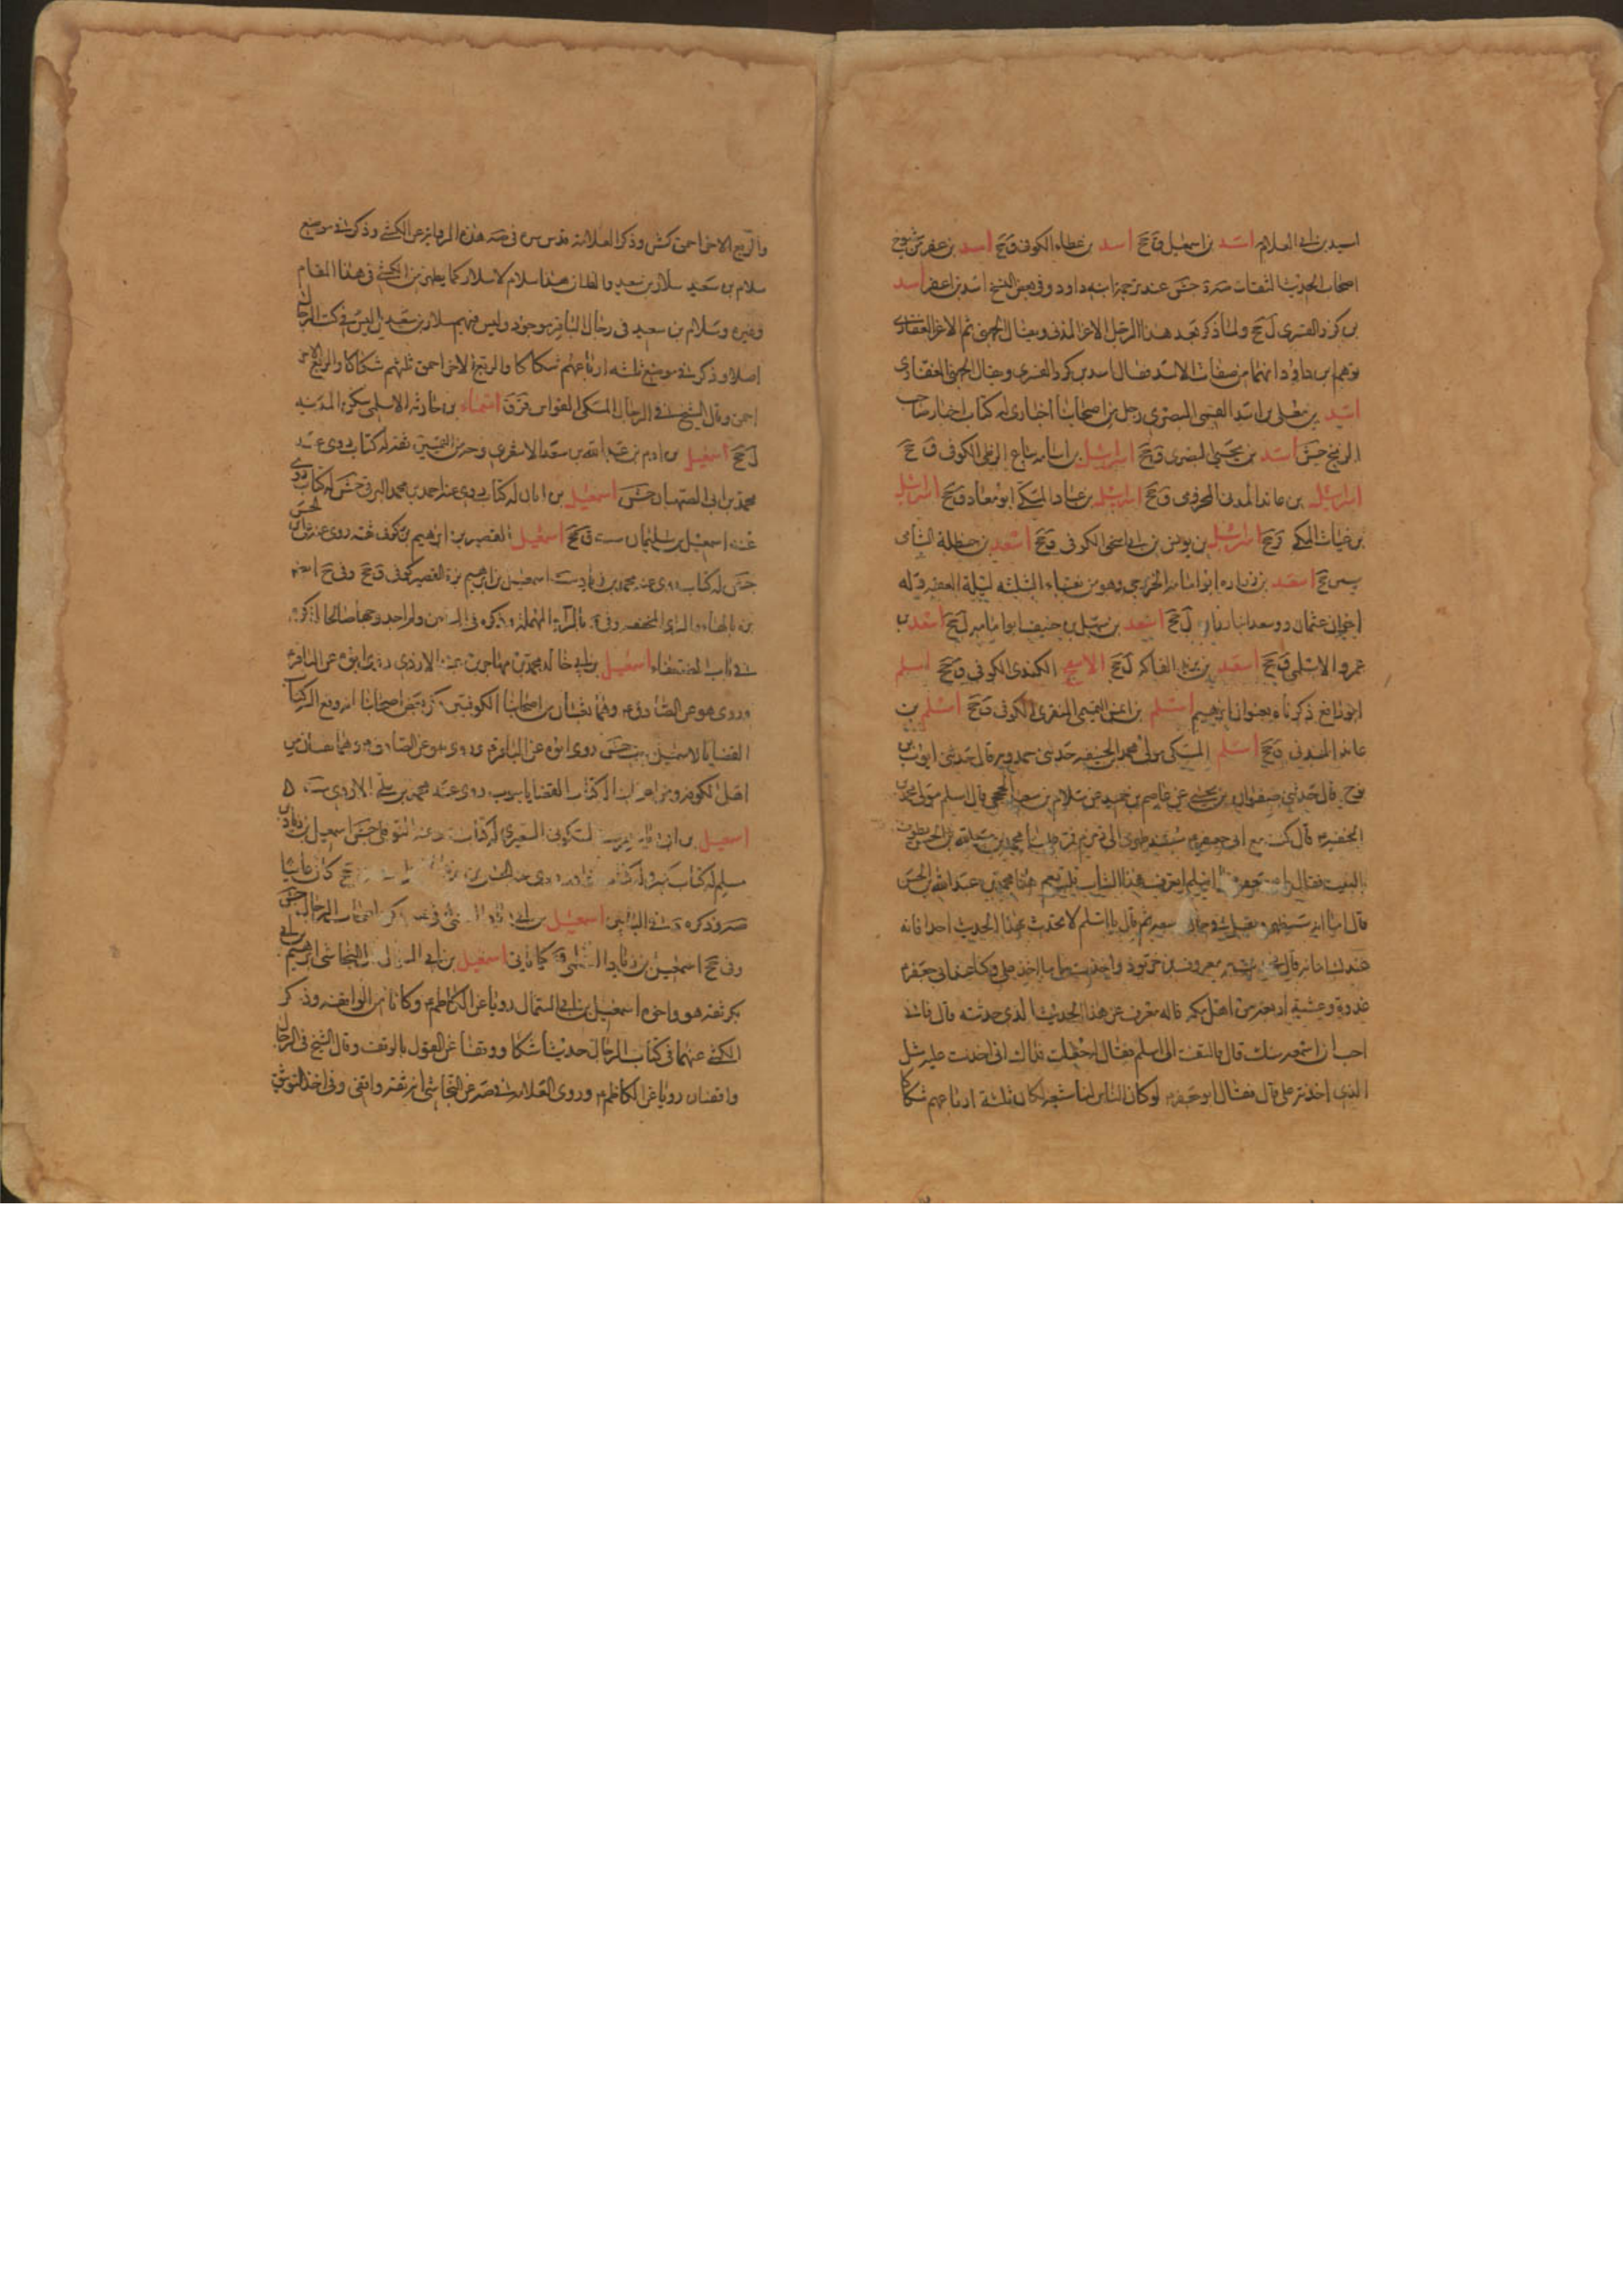 اسيد بن ابي العلاء اسد بن اسمعيل ق جخ اسد بن عطاء الكوفى ق جخ اسد بن عفر من شيوخ
اصحاب الحديث الثقات جش عند ترجمة ابنه داود وفى بعض النسخ اسد بن اعفر اسد
بن كرز القسرى ل جخ ولما ذكر بعد هذا الرجل الاغر المزنى ويقال الجهنى ثم الاغر الغفارى
توهم ابن داود انهما من صفات الاسد فقال اسد بن كرز القسرى ويقال الجهنى الغفارى
اسد بن معلى بن اسد العمى البصرى رجل من اصحابنا اخبارى له كتاب اخبار صاحب
الزنج جش اسد بن يحيى البصرى ق جخ اسرائيل بن اسامة بياع الزطى الكوفى ق جخ
اسرائيل بن عائذ المدنى المخزومى ق جخ اسرائيل بن عباد المكى ابو معاذ ق جخ اسرائيل
بن غياث المكى ق جخ اسرائيل بن يونس بن ابي اسحق الكوفى ق جخ اسعد بن حنظلة الشبامى
سين جخ اسعد بن زرارة ابو امامة الخزرجى وهو من نقباء الثلثة ليلة العقبة وله
اخوان عثمان وسعد ل جخ اسعد بن سهل بن حنيف ابو امامة ل جخ اسعد بن
عمرو الاسلمى ق جخ اسعد بن يزيد بن الفاكه ل جخ الاسلم الكندى الكوفى ق جخ اسلم
ابو رافع ذكرناه بعنوان ابرهيم اسلم بن اعين التميمى المنقرى الكوفى ق جخ اسلم بن
عائذ المدنى ق جخ اسلم المكى مولى محمد بن الحنفية حدثنى حمدويه قال حدثنى ايوب بن
نوح قال حدثنى صفوان بن يحيى عن عاصم بن حميد عن سلام بن سعيد الجمحى قال اسلم مولى محمد بن
الحنفية قال كنت مع ابى جعفر مسندا ظهرى الى زمزم فمر علينا محمد بن عبد الله بن الحسن يطوف
بالبيت فقال ابو جعفر يا اسلم اتعرف هذا الشاب قلت نعم هذا محمد بن عبد الله بن الحسن
قال اما انه سيظهر ويقتل فى حال ثم قال يا اسلم لا تحدث بهذا الحديث احدا فانه
عندك امانة قال فحدثت به معروف بن خربوذ واخذت عليه ما اخذ على وكنا عند ابى جعفر
غدوة وعشية اربعة من اهل مكة فاله معروف عن هذا الحديث الذى حدثته قال فانى
احب ان اسمعه منك قال فالتفت الى اسلم فقال جعلت فداك انى اخذت عليه مثل
الذى اخذته على قال فقال ابو جعفر لو كان الناس لنا شيعة لكان ثلثة ارباعهم شكاكا
والربع الاخر احمق كش وذكر العلامة قدس سره فى صه هذه الرواية عن الكشى وذكر فى موضع
سلام بن سعيد سلار بن سعيد والظاهر هذا سلام لا سلار كما يظهر من الكشى فى هذا المقام
وغيره وسلام بن سعيد فى رجال الباقر موجود وليس فيهم سلار بن سعيد بل ليس فى كتب الرجال
اصلا وذكر فى موضع ثلثة ارباعهم شكاكا والربع الاخر احمق ثلثهم شكاكا والربع الاخر
احمق وقال الشيخ فى الرجال المكى القواس قر ق اسماء بن حارثة الاسلمى سكن المدينة
ل جخ اسمعيل بن ادم بن عبد الله بن سعد الاشعرى وجه من القميين ثقة له كتاب روى عنه
محمد بن ابى الصهبان جش اسمعيل بن ابان له كتاب روى عنه احمد بن محمد البرقى جش له كتاب روى
عنه اسمعيل بن سليمان ق جخ اسمعيل القصير بن ابرهيم بن كوفى ثقة روى عنه على بن الحسن
جش له كتاب روى عنه محمد بن زياد ست اسمعيل بن ابرهيم بن بزة القصير كوفى ق جخ وفى جخ
بن بالهاء والزاى المخففة وفى بالراء المهملة وذكره فى الد
فى باب الضعفاء اسمعيل بن ابي خالد محمد بن مهاجر بن عبيد الازدى روى ابوه عن الباقر
وروى هو عن الصادق وهما ثقتان من اصحابنا الكوفيين ذكره بعض اصحابنا انه وقع اليه كتاب
القضايا لاسمعيل مبوب جش روى ابوه عن الباقر وروى هو عن الصادق وهما ثقتان من
اهل الكوفة كتاب القضايا مبوب روى عنه محمد بن سالم الازدى ست
اسمعيل بن ابى زياد السكونى الشعيرى له كتاب روى عنه النوفلى جش اسمعيل بن زياد بن
مسلم له كتاب كبير وله كتاب النوادر كان عاميا
صه وذكره فى البابين اسمعيل بن ابى اصحاب الرجال جش
وفى جخ اسمعيل بن زياد السلمى ق كياتى اسمعيل بن ابى السمال النجاشى ابرهيم بن ابى
بكر ثقة هو واخوه اسمعيل بن ابى السمال رويا عن الكاظم وكانا من الواقفة وذكر
الكشى عنهما فى كتاب الرجال حديثا شكا ووقفا عن القول بالوقف وقال الشيخ فى الرجال
واقفيان رويا عن الكاظم وروى العلامة فى صه عن النجاشى انه ثقة واقفى وفى اخذ التوثيق